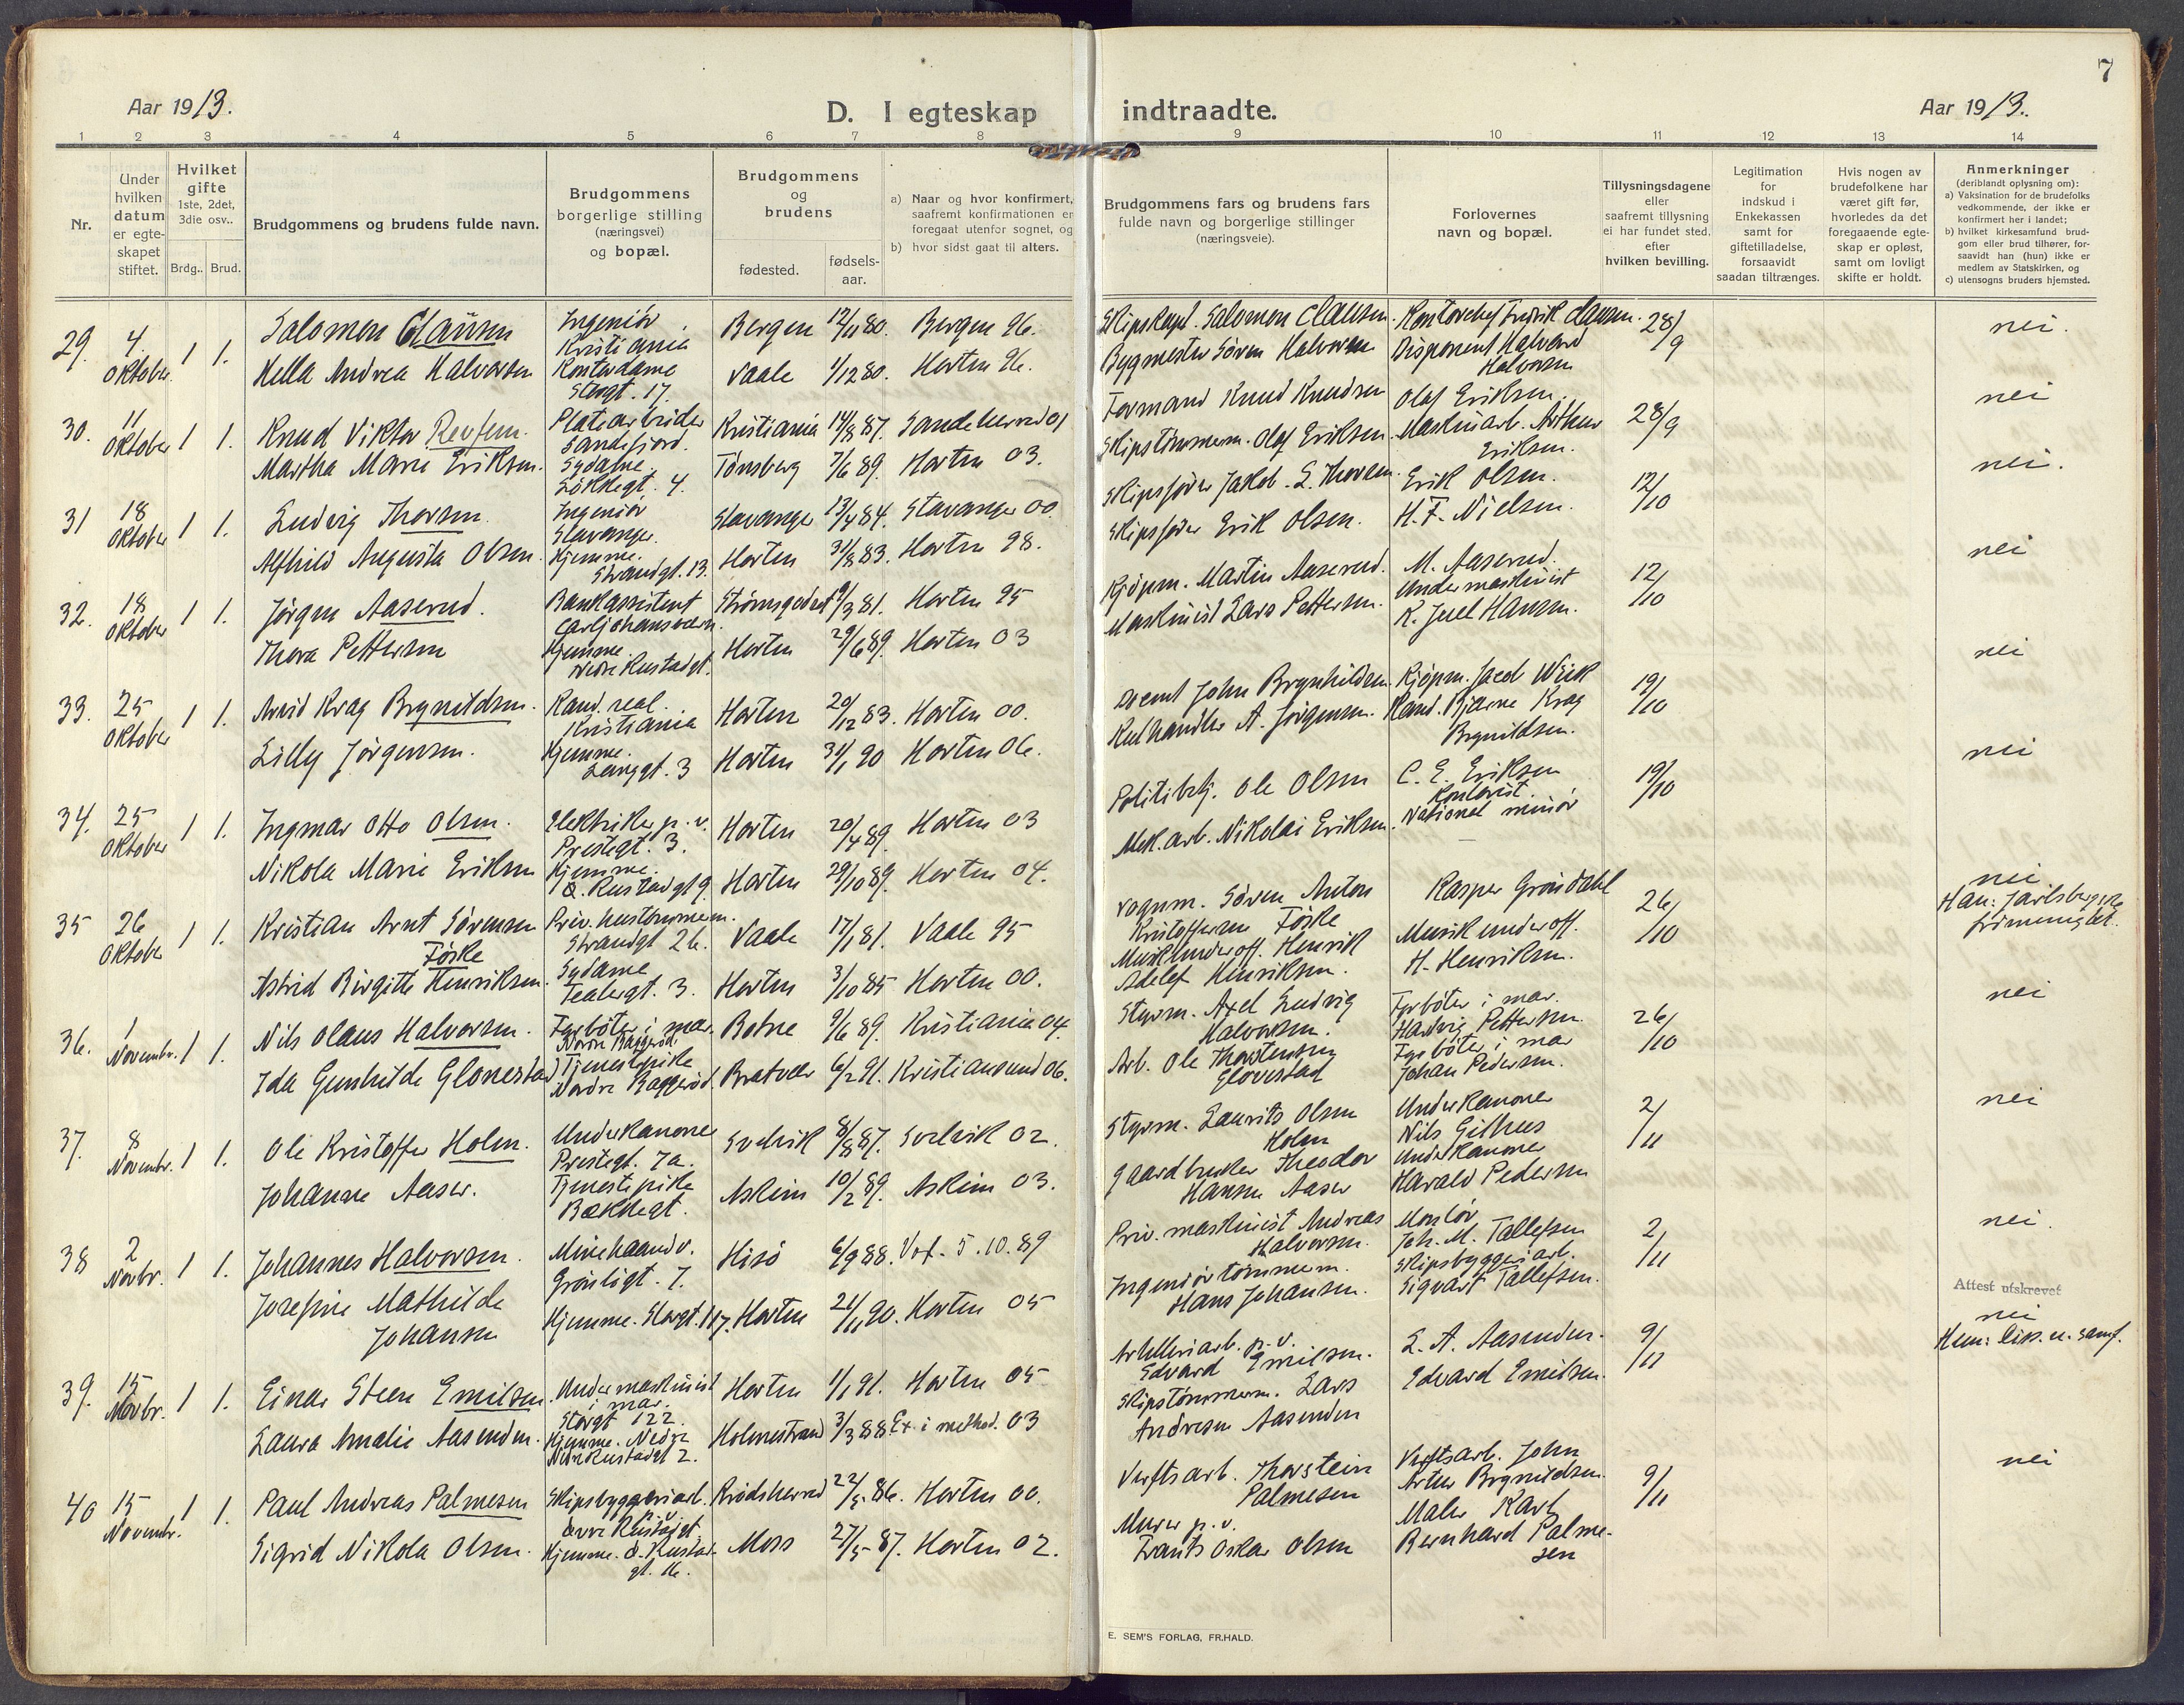 7
Aar 1913.
D. I egteskap indtraadte.
Aar 1913.
1 2 3 4 5 6 7 8 9 10 11 12 13 14
Nr.
Under hvilken datum er egte-skapet stiftet.
Hvilket gifte 1ste, 2det, 3die osv..
Brdg.. Brud.
Brudgommens og brudens fulde navn.
Brudgommens borgerlige stilling (næringsvei) og bopæl.
Brudgommens og brudens
fødested. fødsels-aar.
a) Naar og hvor konfirmert, saafremt konfirmationen er foregaat utenfor sognet, og
b) hvor sidst gaat til alters.
Brudgommens fars og brudens fars fulde navn og borgerlige stillinger (næringsveie).
Forlovernes navn og bopæl.
Tillysningsdagene eller saafremt tillysning ei har fundet sted, efter hvilken bevilling.
Legitimation for indskud i Enkekassen samt for giftetilladelse, forsaavidt saadan tiltrænges.
Hvis nogen av brudefolkene har været gift før, hvorledes da det foregaaende egte-skap er opløst, samt om lovligt skifte er holdt.
Anmerkninger (deriblandt oplysning om):
a) Vaksination for de brudefolks vedkommende, der ikke er konfirmert her i landet;
b) hvilket kirkesamfund brud-gom eller brud tilhører, for-saavidt han (hun) ikke er medlem av Statskirken, og
c) utensogns bruders hjemsted.
29. 4. Oktober 1 1. Salomon Clausen Ingeniör Kristiania Bergen 12/11 80. Bergen 96. Skipskapt. Salomon Clausen. Kontorchef Fredrik Clausen. 28/9 nei.
Hella Andrea Halvorsen Kontordame Storgt. 17. Vaale 1/12 80. Horten 96. Bygmester Sören Halvorsen Disponent Halvard Halvorsen
30. 11 Oktober 1 1. Knud Viktor Revfem. Platearbeider Sandefjord. Kristiania 14/8 87. Sandeherred 01 Formand Knud Knudsen Olaf Eriksen. 28/9 nei
Martha Marie Eriksen. Sydame. Tönsberg 7/6 89. Horten 03. Skipstömmerm. Olaf Eriksen. Maskinarb. Arthur Eriksen.
31 18 Oktober 1 1. Ludvig Thorsen. Ingeniör Stavanger. Stavanger 13/4 84. Stavanger 00. Skipsförer Jakob S. Thorsen. Erik Olsen. 12/10 nei.
Alfhild Augusta Olsen. Hjemme. Strandgt. 13. Horten 31/8 83. Horten 98. Skipsförer Erik Olsen. H. F. Nielsen.
32. 18 Oktober 1 1. Jörgen Aaserud. Bankassistent Carljohansværn. 9/3 81. Horten 95 Kjöpm. Martin Aaserud. M. Aaserud. 12/10 nei
Thora Pettersen Hjemme. Nedre Rustadgt. Horten 29/6 89. Horten 03 Maskinist Lars Pettersen. Undermaskinist K. Juel Hansen.
33. 25 Oktober 1 1. Arvid Krag Brynildsen. Kand. real. Kristiania Horten 20/12 83. Horten 00. John Brynhildsen. Kjöpm. Jacob Wiik 19/10 nei
Lilly Jörgensen. Hjemme. Langgt. 3 Horten 31/1 90 Horten 06. Kulhandler A. Jörgensen. Kand. Bjarne Krag Brynildsen.
34. 25 Oktober 1 1. Ingmar Otto Olsen. Elektriker p. v. Prestegt. 3. Horten 20/4 89. Horten 03 Politibtj. Ole Olsen C. E. Eriksen Kontorist. 19/10 nei
Nikola Marie Eriksen Hjemme. Ö. Rustadgt 9. Horten 29/10 89. Horten 04. Mek. arb. Nikolai Eriksen. National minör
35 26 Oktober 1 1. Kristian Arnt Sörensen Föske Priv. hustömmerm. Strandgt 26. Vaale 17/1 81. Vaale 95 Vognm. Sören Anton Kristoffersen Föske Kasper Gröndahl 26/10 nei Han: Jarlsbergske frimenighet.
Astrid Birgitte Henriksen. Sydame Teatergt. 3. Horten 3/10 85 Horten 00. Musikunderoff. Henrik Adelef Henriksen. Musikunderoff. H. Henriksen.
36. 1 Novembr. 1 1. Nils Olaus Halvorsen. Fyrböter i mar. Nordre Baggeröd Botne 9/6 89. Kristiania 04. Styrm. Axel Ludvig Halvorsen. Fyrböter i mar. Hartvig Pettersen. 26/10 nei
Ida Gunhilde Glonestad Tjenestepike Nordre Baggeröd. Bratvær 6/2 91. Kristiansund 06. Arb. Ole Thortensen Glovestad Fyrböter i mar Johan Pedersen.
37. 8 Novembr. 1 1. Ole Kristoffer Holm. Underkanoner Prestegt. 7a. Svelvik 8/8 87. Svelvik 02. Styrm. Laurits Olsen Holm Underkanoner Nils Gilhus 2/11 nei
Johanne Aaser. Tjenestepike Bækkegt. Askim 10/2 89. Askim 03. Gaardbruker Theodor Hansen Aaser Underkanoner Harald Pedersen
38 2 Novbr. 1 1. Johannes Halvorsen. Minehaandv. Grönligt. 7. Hisö 6/9 88. Vox. 5.10.89 Priv. maskinist Andreas Halvorsen. Montör Joh. M. Tallefsen 2/11 nei.
Josefine Mathilde Johansen Hjemme. Storgt. 117. Horten 21/11 90. Horten 05 Ingeniörtömmerm. Hans Johansen. Skipsbyggeriarb. Sigvart Tallefsen.
Attest utskrevet
39. 15 Novbr. 1 1. Einar Steen Emilsen. Undermaskinist i mar. Storgt 122. Horten 1/1 91. Horten 05 Artilleriarb. p. v. Edvard Emilsen. L. A. Aasenden. 9/11 nei
Laura Amalie Aasenden. Hjemme. Nedre Rustadgt 2. Holmestrand 3/3 88 Ex. i method. 03 Skipstömmerm. Lars Andresen Aasenden Edvard Emilsen.
40 15 Novembr. 1 1. Paul Andreas Palmesen Skipsbyggeriarb. p. v. Övre Rustadgt. Krödsherred 22/5 86. Horten 00. Verftsarb. Thorstein Palmesen Verftsarb. John Artur Brynildsen. 9/11 nei
Sigrid Nikola Olsen. Hjemme. Ö. Rustadgt. 16. Moss 27/5 87. Horten 02. Murer p. v. Frants Oskar Olsen Maler Karl Bernhard Palmesen
E. SEM'S FORLAG, FR.HALD.